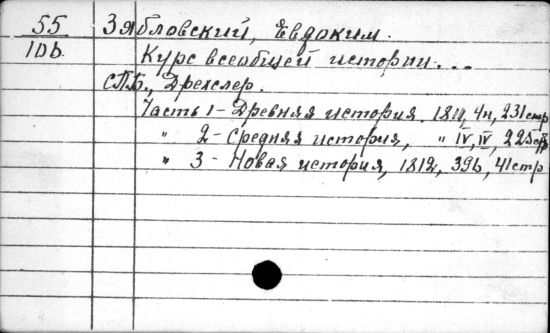 55 Зябловский, Евдоким.
10b. Курс всеобщей истории...
С.П.Б., Дрехслер.
Часть 1 - Древняя история. 1811, 4н, 231 стр
" 2 - Средняя история, " IV, IV,
" 3 - Новая история, 1812, 396, 41 стр